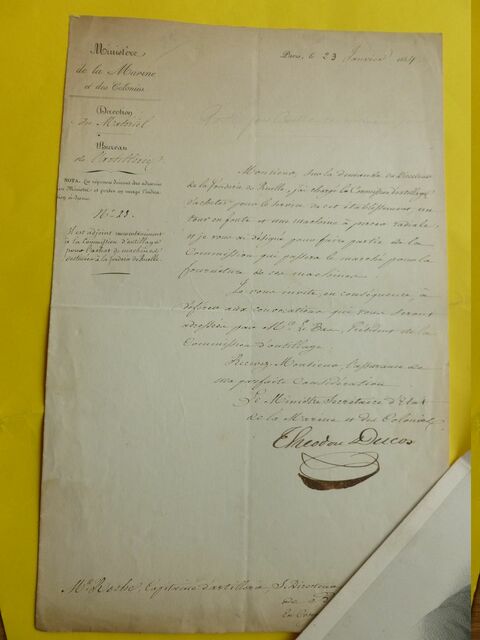 Ministère
de la Marine
et des Colonies
Direction
du Matériel
Bureau
de l'artillerie
NOTA. Les réponses doivent être adressées
au Ministre et porter en marge l'indica-
tion ci-dessus.
N° 28.
Il est adjoint momentanément
à la Commission d'outillage
pour l'achat de machines
destinées à la fonderie de Ruelle.
Paris, le 23 Janvier 1854
Monsieur, Sur la demande du Directeur
de la fonderie de Ruelle, j'ai chargé la Commission d'outillage
d'acheter pour le service de cet établissement un
tour en fonte et une machine à percer radiale
et je vous ai désigné pour faire partie de la
Commission qui passera le marché pour la
fourniture de ces machines.
Je vous invite, en conséquence, à
déférer aux convocations qui vous seront
adressées par Mr. Le Bas, Président de la
Commission d'outillage.
Recevez, Monsieur, l'assurance de
ma parfaite considération
Le Ministre Secrétaire d'Etat
de la Marine et des Colonies
Theodore Ducos
Mr. Roche, Capitaine d'artillerie, S. Directeur